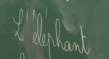 L'éléphant